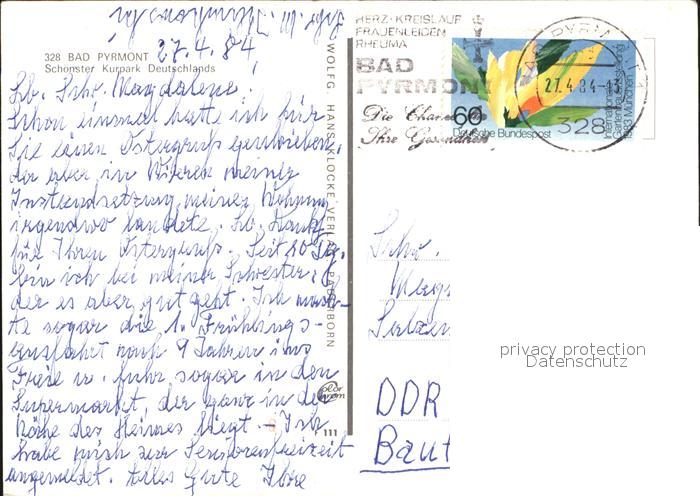 328 BAD PYRMONT
Schönster Kurpark Deutschlands
27.4.84
Lb. Schw. Magdalene!
Schon einmal hatte ich für
Sie einen Ostergruß geschrieben,
der aber in Wirren meiner
Instandsetzung meiner Wohnung
irgendwo landete. Hb. Dank
für Ihren Ostergruß. Seit 10 Tg.
bin ich bei meiner Schwester,
der es aber gut geht. Ich mach-
te sogar die 1. Frühlings-
ausfahrt nach 9 Jahren ins
Freie u. fuhr sogar in den
Supermarkt, der ganz in der
Nähe des Heimes liegt. – Ich
habe mich zur Seniorenfreizeit
angemeldet. Alles Gute Ihre
WOLFG. HANS KLOCKE VERLAG PADERBORN
111
HERZ-KREISLAUF
FRAUENLEIDEN
RHEUMA
BAD
PYRMONT
Die Chance
Ihre Gesundheit
PYRMONT 1
27.4.84-13
328
60
Deutsche Bundespost
Internationale
Gartenbauausstellung
1983 München
Schw.
DDR
Baut
privacy protection
Datenschutz